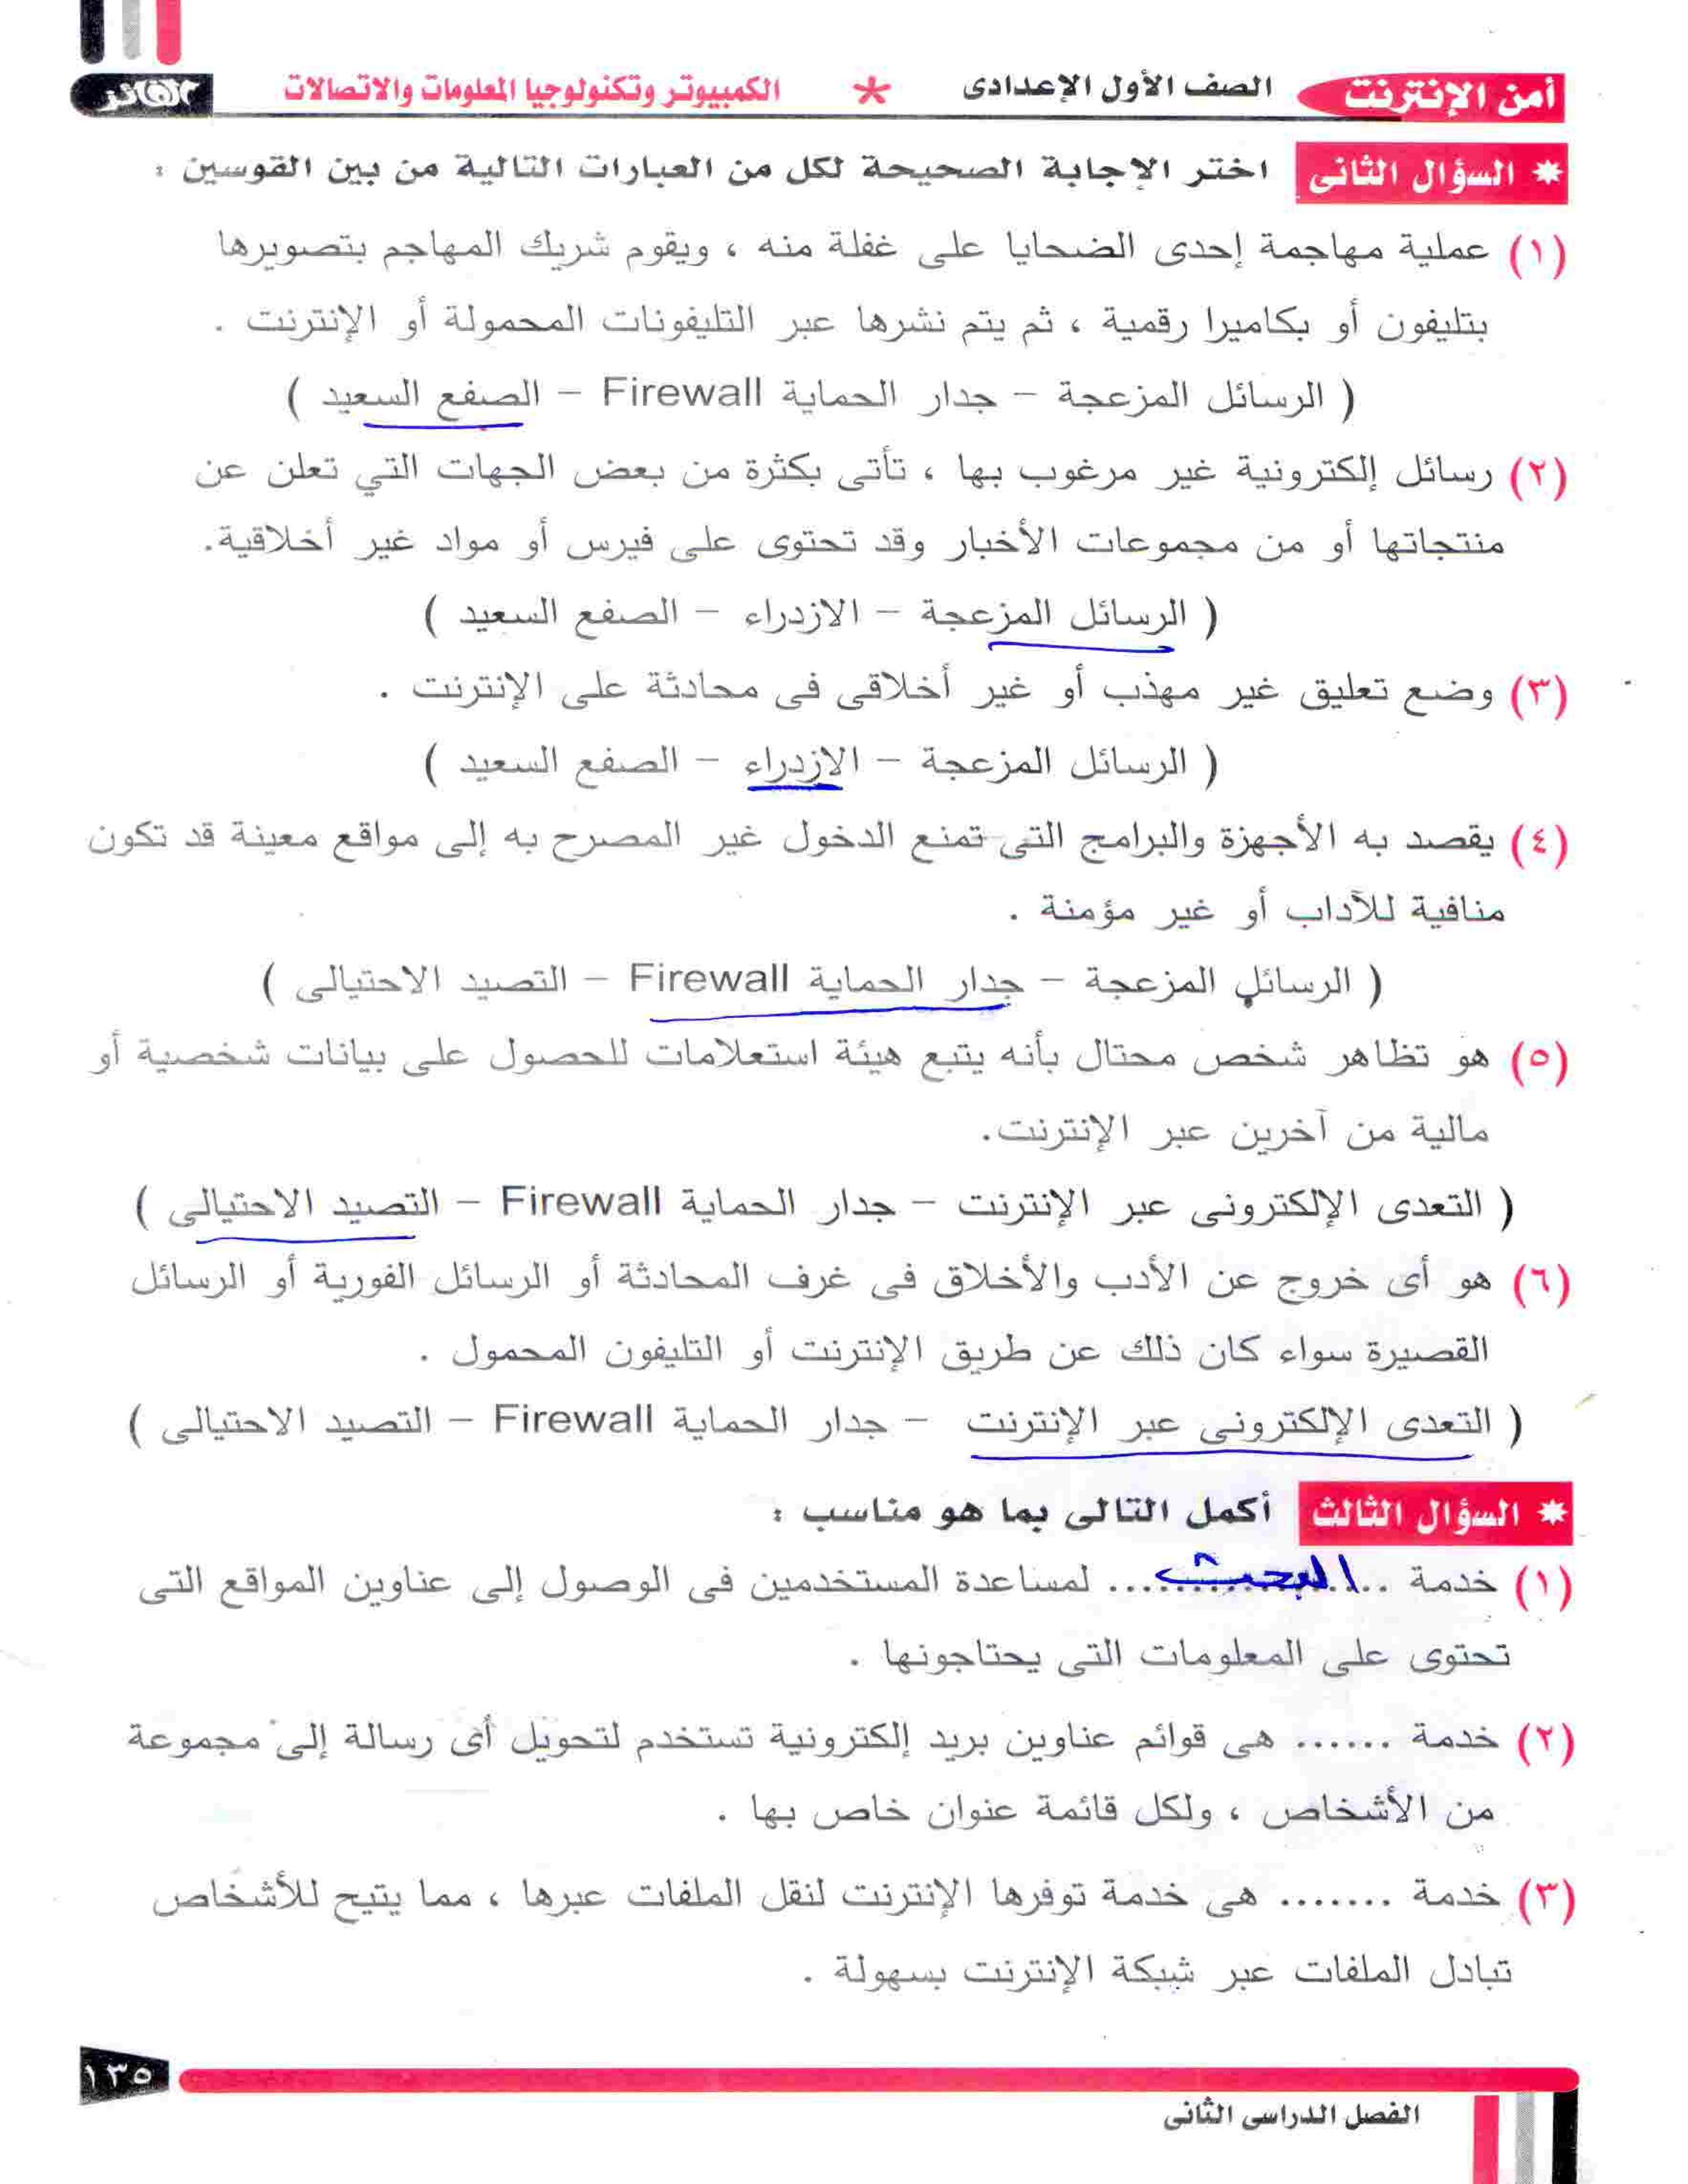 أمن الإنترنت الصف الأول الإعدادى * الكمبيوتر وتكنولوجيا المعلومات والاتصالات الفائز
* السؤال الثانى اختر الإجابة الصحيحة لكل من العبارات التالية من بين القوسين :
(١) عملية مهاجمة إحدى الضحايا على غفلة منه ، ويقوم شريك المهاجم بتصويرها
بتليفون أو بكاميرا رقمية ، ثم يتم نشرها عبر التليفونات المحمولة أو الإنترنت .
( الرسائل المزعجة – جدار الحماية Firewall – الصفع السعيد )
(٢) رسائل إلكترونية غير مرغوب بها ، تأتى بكثرة من بعض الجهات التي تعلن عن
منتجاتها أو من مجموعات الأخبار وقد تحتوى على فيرس أو مواد غير أخلاقية.
( الرسائل المزعجة – الازدراء – الصفع السعيد )
(٣) وضع تعليق غير مهذب أو غير أخلاقى فى محادثة على الإنترنت .
( الرسائل المزعجة – الازدراء – الصفع السعيد )
(٤) يقصد به الأجهزة والبرامج التى تمنع الدخول غير المصرح به إلى مواقع معينة قد تكون
منافية للآداب أو غير مؤمنة .
( الرسائل المزعجة – جدار الحماية Firewall – التصيد الاحتيالى )
(٥) هو تظاهر شخص محتال بأنه يتبع هيئة استعلامات للحصول على بيانات شخصية أو
مالية من آخرين عبر الإنترنت.
( التعدى الإلكترونى عبر الإنترنت – جدار الحماية Firewall – التصيد الاحتيالى )
(٦) هو أى خروج عن الأدب والأخلاق فى غرف المحادثة أو الرسائل الفورية أو الرسائل
القصيرة سواء كان ذلك عن طريق الإنترنت أو التليفون المحمول .
( التعدى الإلكترونى عبر الإنترنت – جدار الحماية Firewall – التصيد الاحتيالى )
* السؤال الثالث أكمل التالى بما هو مناسب :
(١) خدمة ..البحث... لمساعدة المستخدمين فى الوصول إلى عناوين المواقع التى
تحتوى على المعلومات التى يحتاجونها .
(٢) خدمة ...... هى قوائم عناوين بريد إلكترونية تستخدم لتحويل أى رسالة إلى مجموعة
من الأشخاص ، ولكل قائمة عنوان خاص بها .
(٣) خدمة ....... هى خدمة توفرها الإنترنت لنقل الملفات عبرها ، مما يتيح للأشخاص
تبادل الملفات عبر شبكة الإنترنت بسهولة .
١٣٥
الفصل الدراسى الثانى